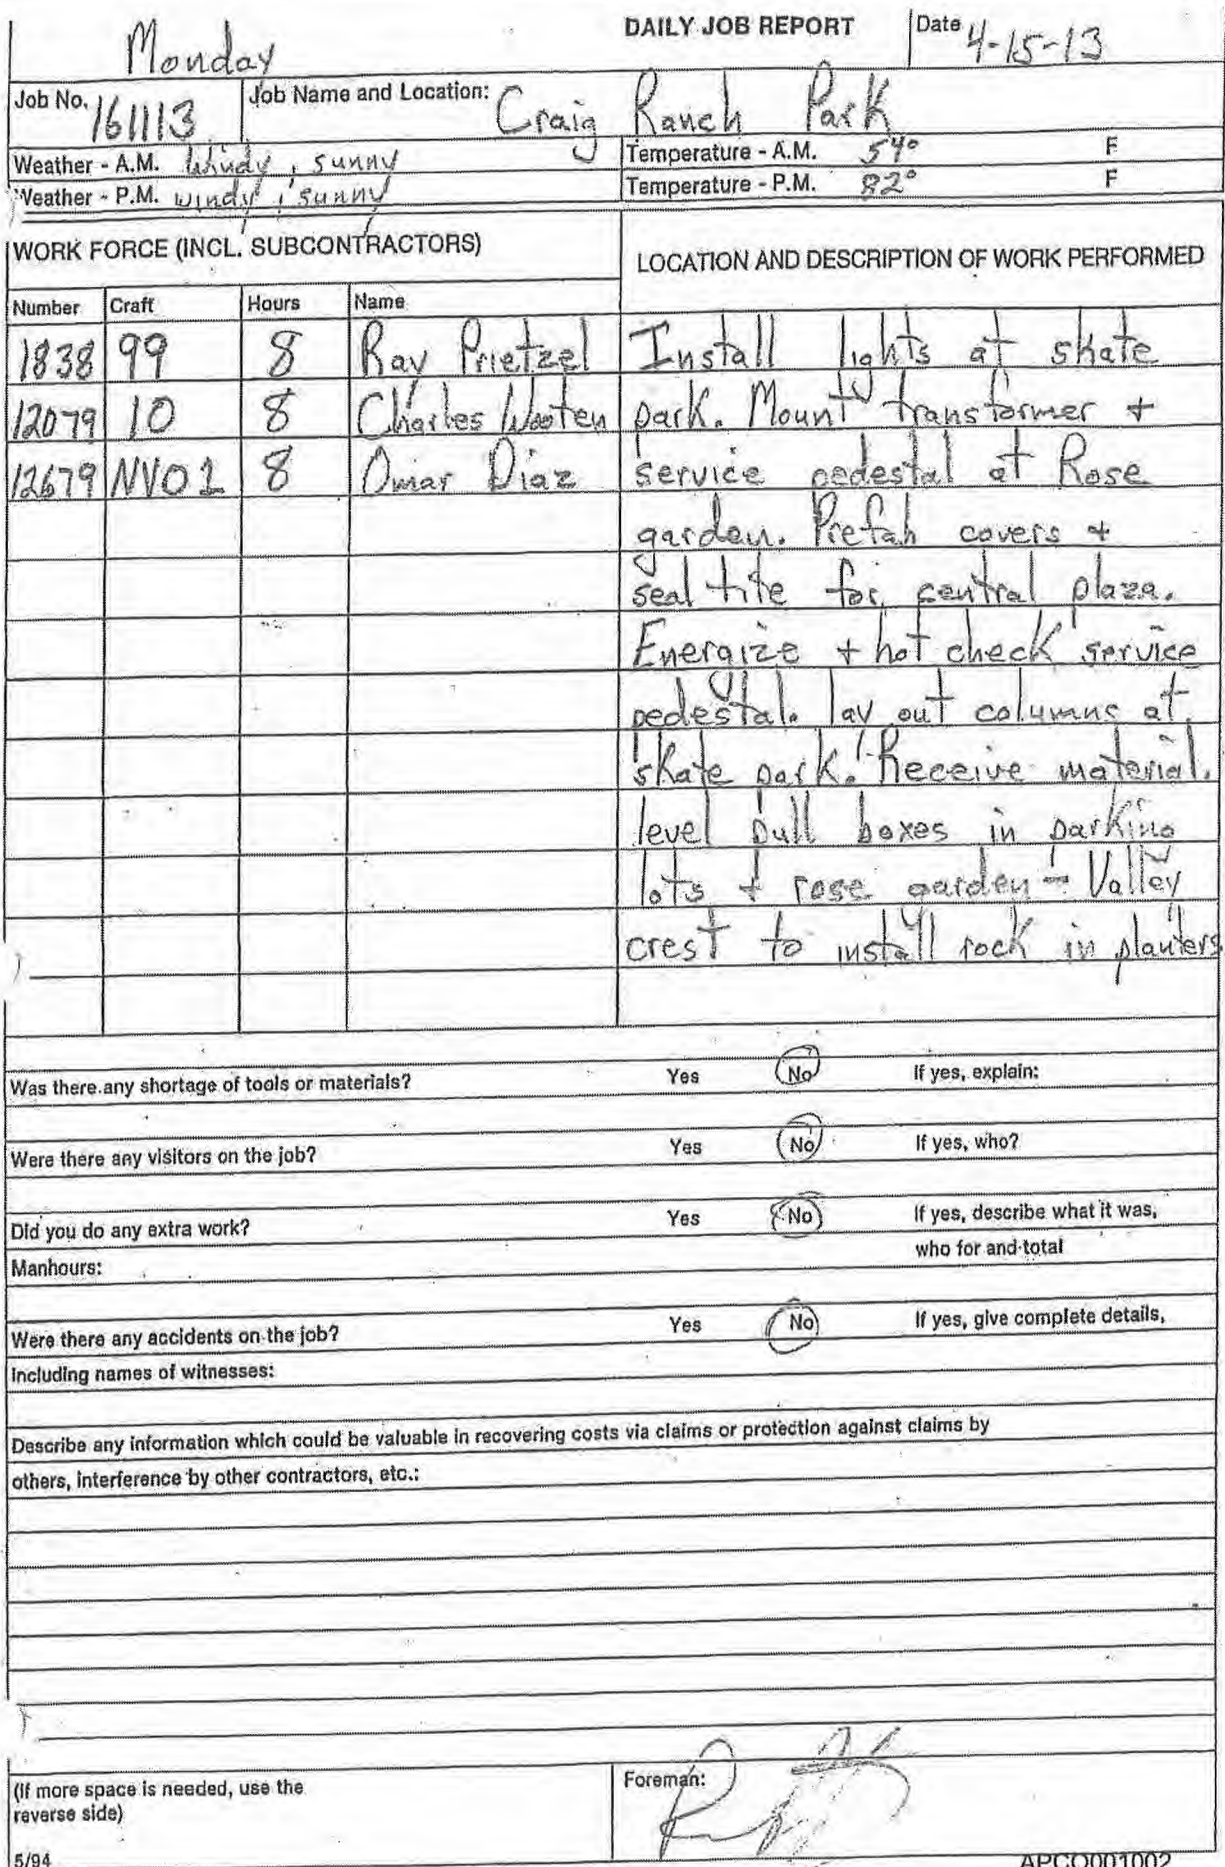 DAILY JOB REPORT
Date 4-15-13
Monday
Job No. 161113
Job Name and Location: Craig Ranch Park
Weather - A.M. Windy, sunny
Temperature - A.M. 54° F
Weather - P.M. windy, sunny
Temperature - P.M. 82° F
WORK FORCE (INCL. SUBCONTRACTORS)
LOCATION AND DESCRIPTION OF WORK PERFORMED
Number Craft Hours Name
1838 99 8 Ray Prietzel
Install lights at skate
12079 10 8 Charles Wooten
park. Mount transformer +
12679 NV01 8 Omar Diaz
service pedestal at Rose
garden. Prefab covers +
seal tite for central plaza.
Energize + hot check service
pedestal. lay out columns at
skate park. Receive material.
level pull boxes in parking
lots + rose garden - Valley
crest to install rock in planters
Was there any shortage of tools or materials? Yes No If yes, explain:
Were there any visitors on the job? Yes No If yes, who?
Did you do any extra work? Yes No If yes, describe what it was,
who for and total
Manhours:
Were there any accidents on the job? Yes No If yes, give complete details,
including names of witnesses:
Describe any information which could be valuable in recovering costs via claims or protection against claims by
others, interference by other contractors, etc.:
(If more space is needed, use the
reverse side)
Foreman:
5/94
APCO001002